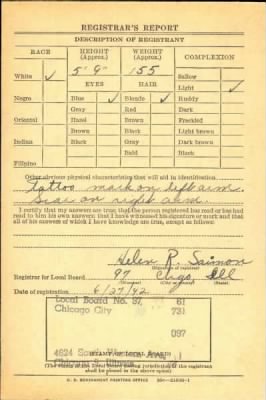 REGISTRAR'S REPORT
DESCRIPTION OF REGISTRANT
RACE
HEIGHT (Approx.)
WEIGHT (Approx.)
COMPLEXION
5' 9"
155
White ✓
EYES
HAIR
Sallow
Light ✓
Negro
Blue ✓
Blonde ✓
Ruddy
Gray
Red
Dark
Oriental
Hazel
Brown
Freckled
Brown
Black
Light brown
Indian
Black
Gray
Dark brown
Bald
Black
Filipino
Other obvious physical characteristics that will aid in identification
Tattoo mark on left arm.
Scar on right arm.
I certify that my answers are true; that the person registered has read or has had
read to him his own answers; that I have witnessed his signature or mark and that
all of his answers of which I have knowledge are true, except as follows:
Helen R.
(Signature of registrar)
Registrar for Local Board 97 Chgo, Ill
(Number) (City or county) (State)
Date of registration 6/27/42
Local Board No. 97, 61
Chicago City 731
097
4624 South
(STAMP OF LOCAL BOARD)
Chicago, Illinois
(The stamp of the Local Board having jurisdiction of the registrant
shall be placed in the above space)
U. S. GOVERNMENT PRINTING OFFICE